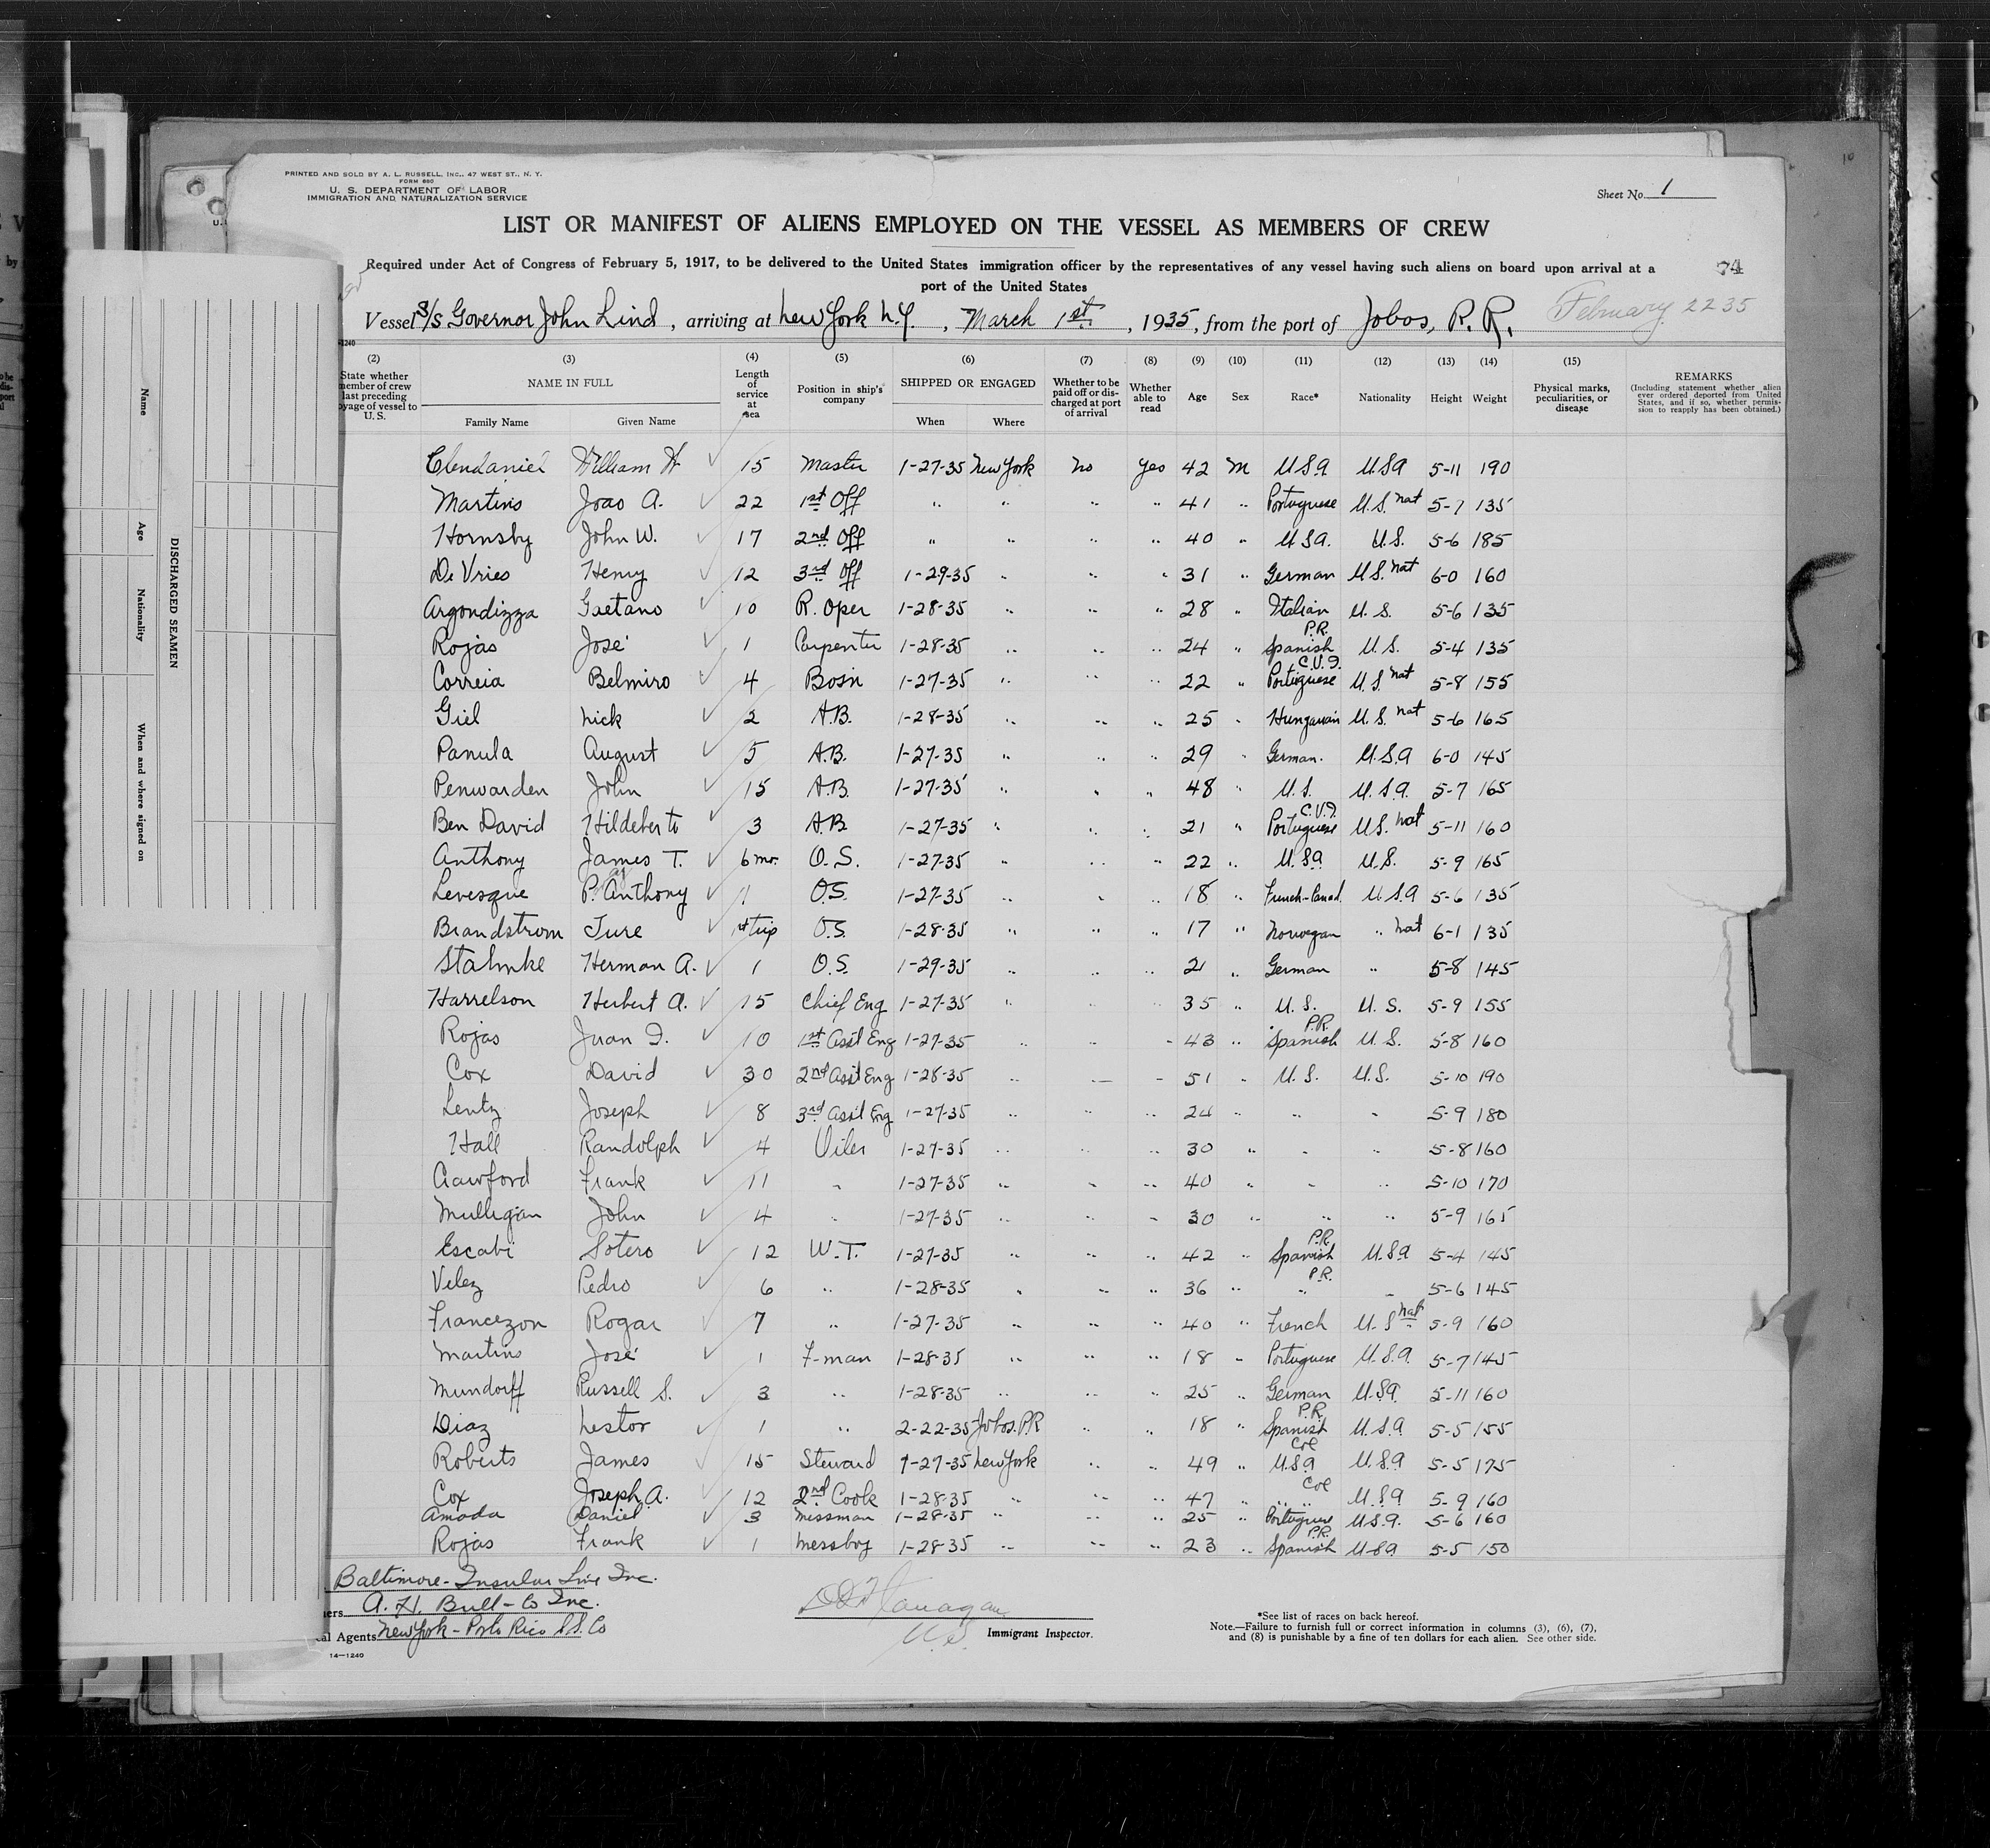 PRINTED AND SOLD BY A. L. RUSSELL, INC., 47 WEST ST., N. Y.
FORM 680
U. S. DEPARTMENT OF LABOR
IMMIGRATION AND NATURALIZATION SERVICE
Sheet No. 1
LIST OR MANIFEST OF ALIENS EMPLOYED ON THE VESSEL AS MEMBERS OF CREW
Required under Act of Congress of February 5, 1917, to be delivered to the United States immigration officer by the representatives of any vessel having such aliens on board upon arrival at a
port of the United States
74
Vessel S/S Governor John Lind, arriving at New York N.Y., March 1st, 1935, from the port of Jobos, P. R.
February 22 35
(2) (3) (4) (5) (6) (7) (8) (9) (10) (11) (12) (13) (14) (15)
State whether member of crew last preceding voyage of vessel to U. S.
NAME IN FULL Family Name Given Name
Length of service at sea
Position in ship's company
SHIPPED OR ENGAGED When Where
Whether to be paid off or discharged at port of arrival
Whether able to read
Age Sex Race* Nationality Height Weight
Physical marks, peculiarities, or disease
REMARKS
(Including statement whether alien ever ordered deported from United States, and if so, whether permission to reapply has been obtained.)
Clendaniel William H 15 Master 1-27-35 New York no yes 42 M U S A U S A 5-11 190
Martins Joao A. 22 1st Off " " " " 41 " Portuguese U.S. nat 5-7 135
Hornsby John W. 17 2nd Off " " " " 40 " U S A. U.S. 5-6 185
De Vries Henry 12 3rd Off 1-29-35 " " " 31 " German U.S. nat 6-0 160
Argondizza Gaetano 10 R. Oper 1-28-35 " " " 28 " Italian U. S. 5-6 135
Rojas José 1 Carpenter 1-28-35 " " " 24 " P.R. Spanish U. S. 5-4 135
Correia Belmiro 4 Bosn 1-27-35 " " " 22 " C.V.I. Portuguese U.S. nat 5-8 155
Giel Nick 2 A.B. 1-28-35 " " " 25 " Hungarian U.S. nat 5-6 165
Panula August 5 A.B. 1-27-35 " " " 29 " German. U.S.A 6-0 145
Penwarden John 15 A.B. 1-27-35 " " " 48 " U.S. U.S.A. 5-7 165
Ben David Hildeberto 3 A.B 1-27-35 " " " 21 " C.V.I. Portuguese U.S. nat 5-11 160
Anthony James T. 6 mo. O.S. 1-27-35 " " " 22 " U.S.A U.S. 5-9 165
Levesque P. Anthony 1 O.S. 1-27-35 " " 18 " French-Canad. U.S.A 5-6 135
Brandstrom Ture 1st trip O.S. 1-28-35 " " " 17 " Norwegan " nat 6-1 135
Stahnke Herman A. 1 O.S. 1-29-35 " " " 21 " German " 5-8 145
Harrelson Herbert A. 15 Chief Eng 1-27-35 " " " 35 " U. S. U. S. 5-9 155
Rojas Juan I. 10 1st Ass't Eng 1-27-35 " " " 43 " P.R. Spanish U. S. 5-8 160
Cox David 30 2nd Ass't Eng 1-28-35 " " " 51 " U. S. U.S. 5-10 190
Lentz Joseph 8 3rd Ass't Eng 1-27-35 " " " 24 " " " 5-9 180
Hall Randolph 4 Oiler 1-27-35 " " " 30 " " " 5-8 160
Crawford Frank 11 " 1-27-35 " " " 40 " " " 5-10 170
Mulligan John 4 " 1-27-35 " " " 30 " " " 5-9 165
Escabi Sotero 12 W.T. 1-27-35 " " " 42 " P.R. Spanish U.S.A 5-4 145
Velez Pedro 6 " 1-28-35 " " " 36 " P.R. " " 5-6 145
Francezon Rogar 7 " 1-27-35 " " " 40 " French U.S nat 5-9 160
Martins José 1 F-man 1-28-35 " " " 18 " Portuguese U.S.A. 5-7 145
Mundorff Russell S. 3 " 1-28-35 " " " 25 " German U.S.A. 5-11 160
Diaz Nestor 1 " 2-22-35 Jobos. P.R " " 18 " P.R. Spanish U.S.A 5-5 155
Roberts James 15 Steward 1-27-35 New York " " 49 " Col U.S.A U.S.A 5-5 175
Cox Joseph A. 12 2nd Cook 1-28-35 " " " 47 " Col " " U.S.A 5-9 160
Amada Daniel 3 Messman 1-28-35 " " " 25 " Portuguese U.S.A. 5-6 160
Rojas Frank 1 Messboy 1-28-35 " " " 23 " P.R. Spanish U.S.A 5-5 150
Baltimore-Insular Line Inc.
A. H. Bull-Co Inc.
New York-Porto Rico S.S. Co
14—1240
U.S. Immigrant Inspector.
*See list of races on back hereof.
Note.—Failure to furnish full or correct information in columns (3), (6), (7),
and (8) is punishable by a fine of ten dollars for each alien. See other side.
DISCHARGED SEAMEN
Name
Age
Nationality
When and where signed on